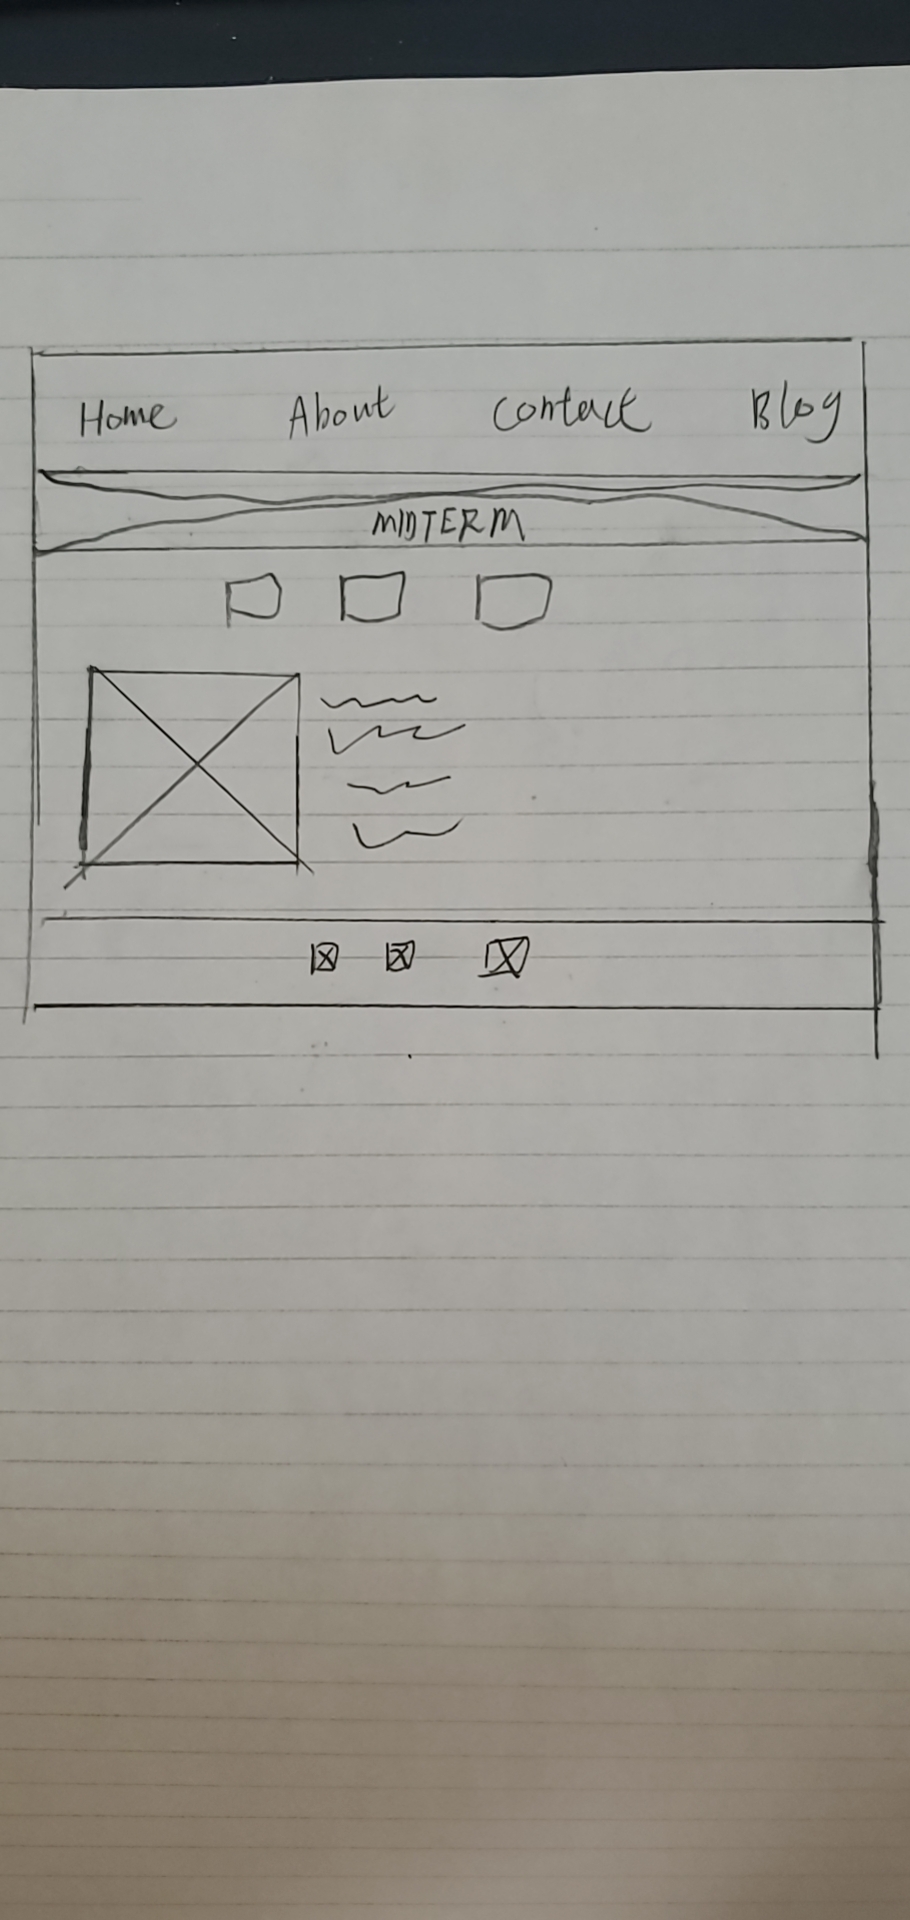 Home About Contact Blog
MIDTERM